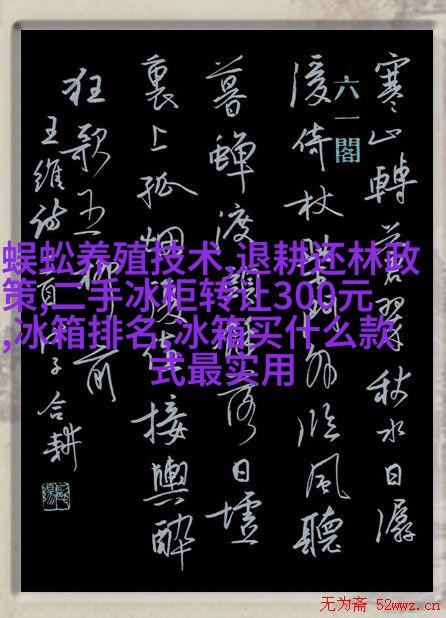 寒山轉蒼翠秋水日潺
六一閣
湲倚杖柴門外臨風聽
暮蟬渡頭餘落日墟
裏上孤烟復值接輿醉
狂歌五柳前
王維詩 合耕
蜈蚣养殖技术,退耕还林政
策,二手冰柜转让300元
,冰箱排名,冰箱买什么款
式最实用
无为斋 52wwz.cn